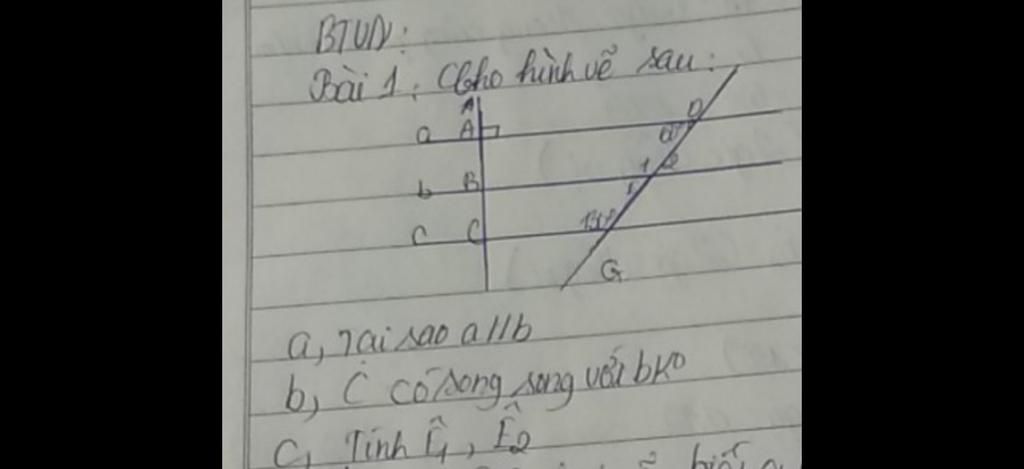 BTVN:
Bài 1: Cho hình vẽ sau:
A
a A D
b B 1
c C
G
a, Tại sao a//b
b, C có song song với b ko
C, Tính Ê1, Ê2